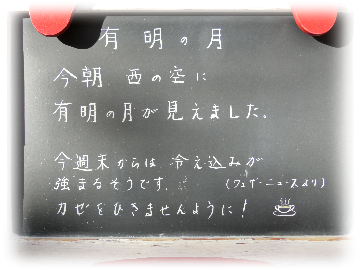 有明の月
今朝 西の空に
有明の月が見えました。
今週末からは 冷え込みが
強まるそうです。 (ウェザーニュースより)
カゼをひきませんように!